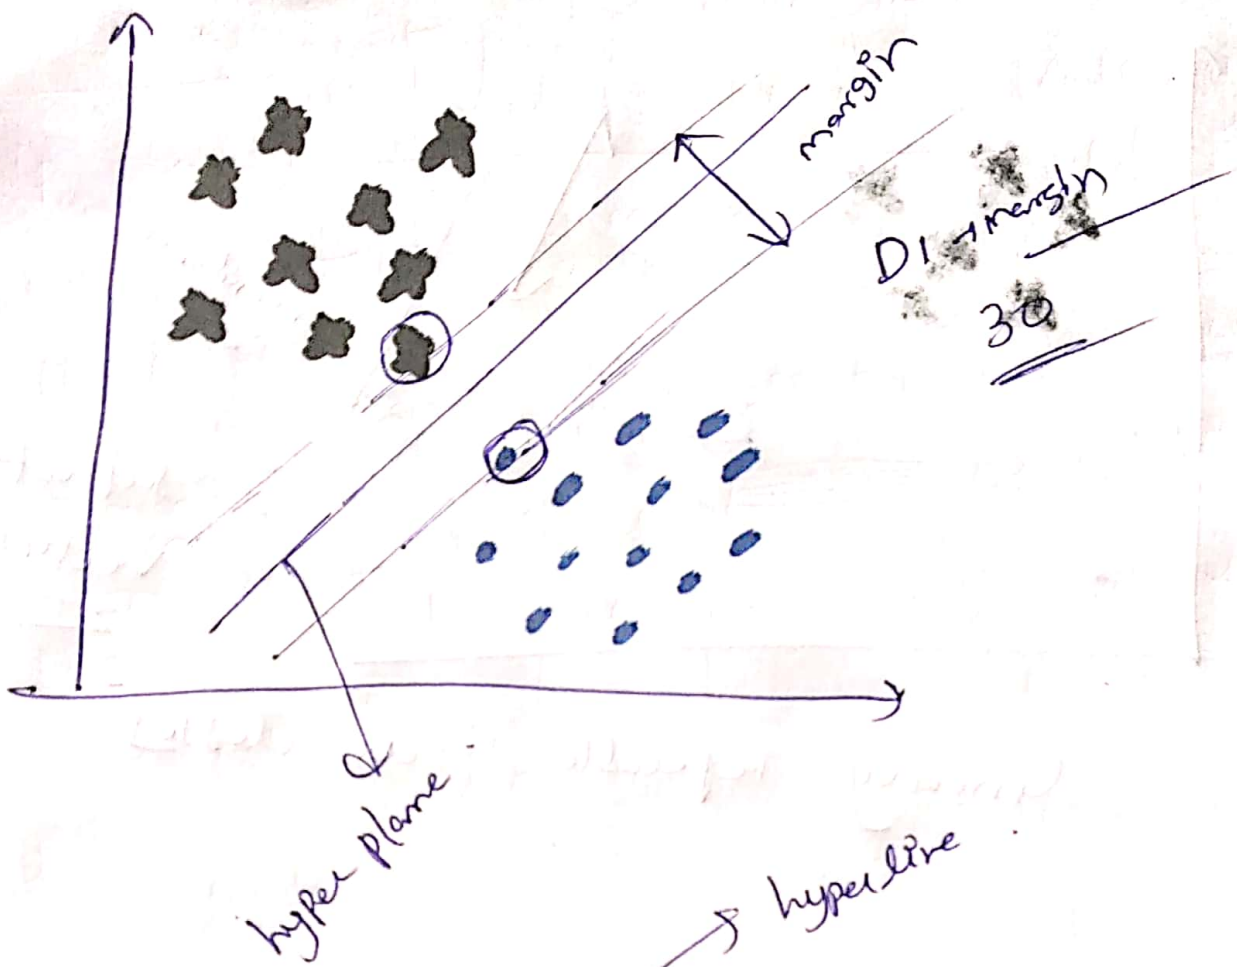 margin
D1 → margin
30
hyper plane
→ hyper line